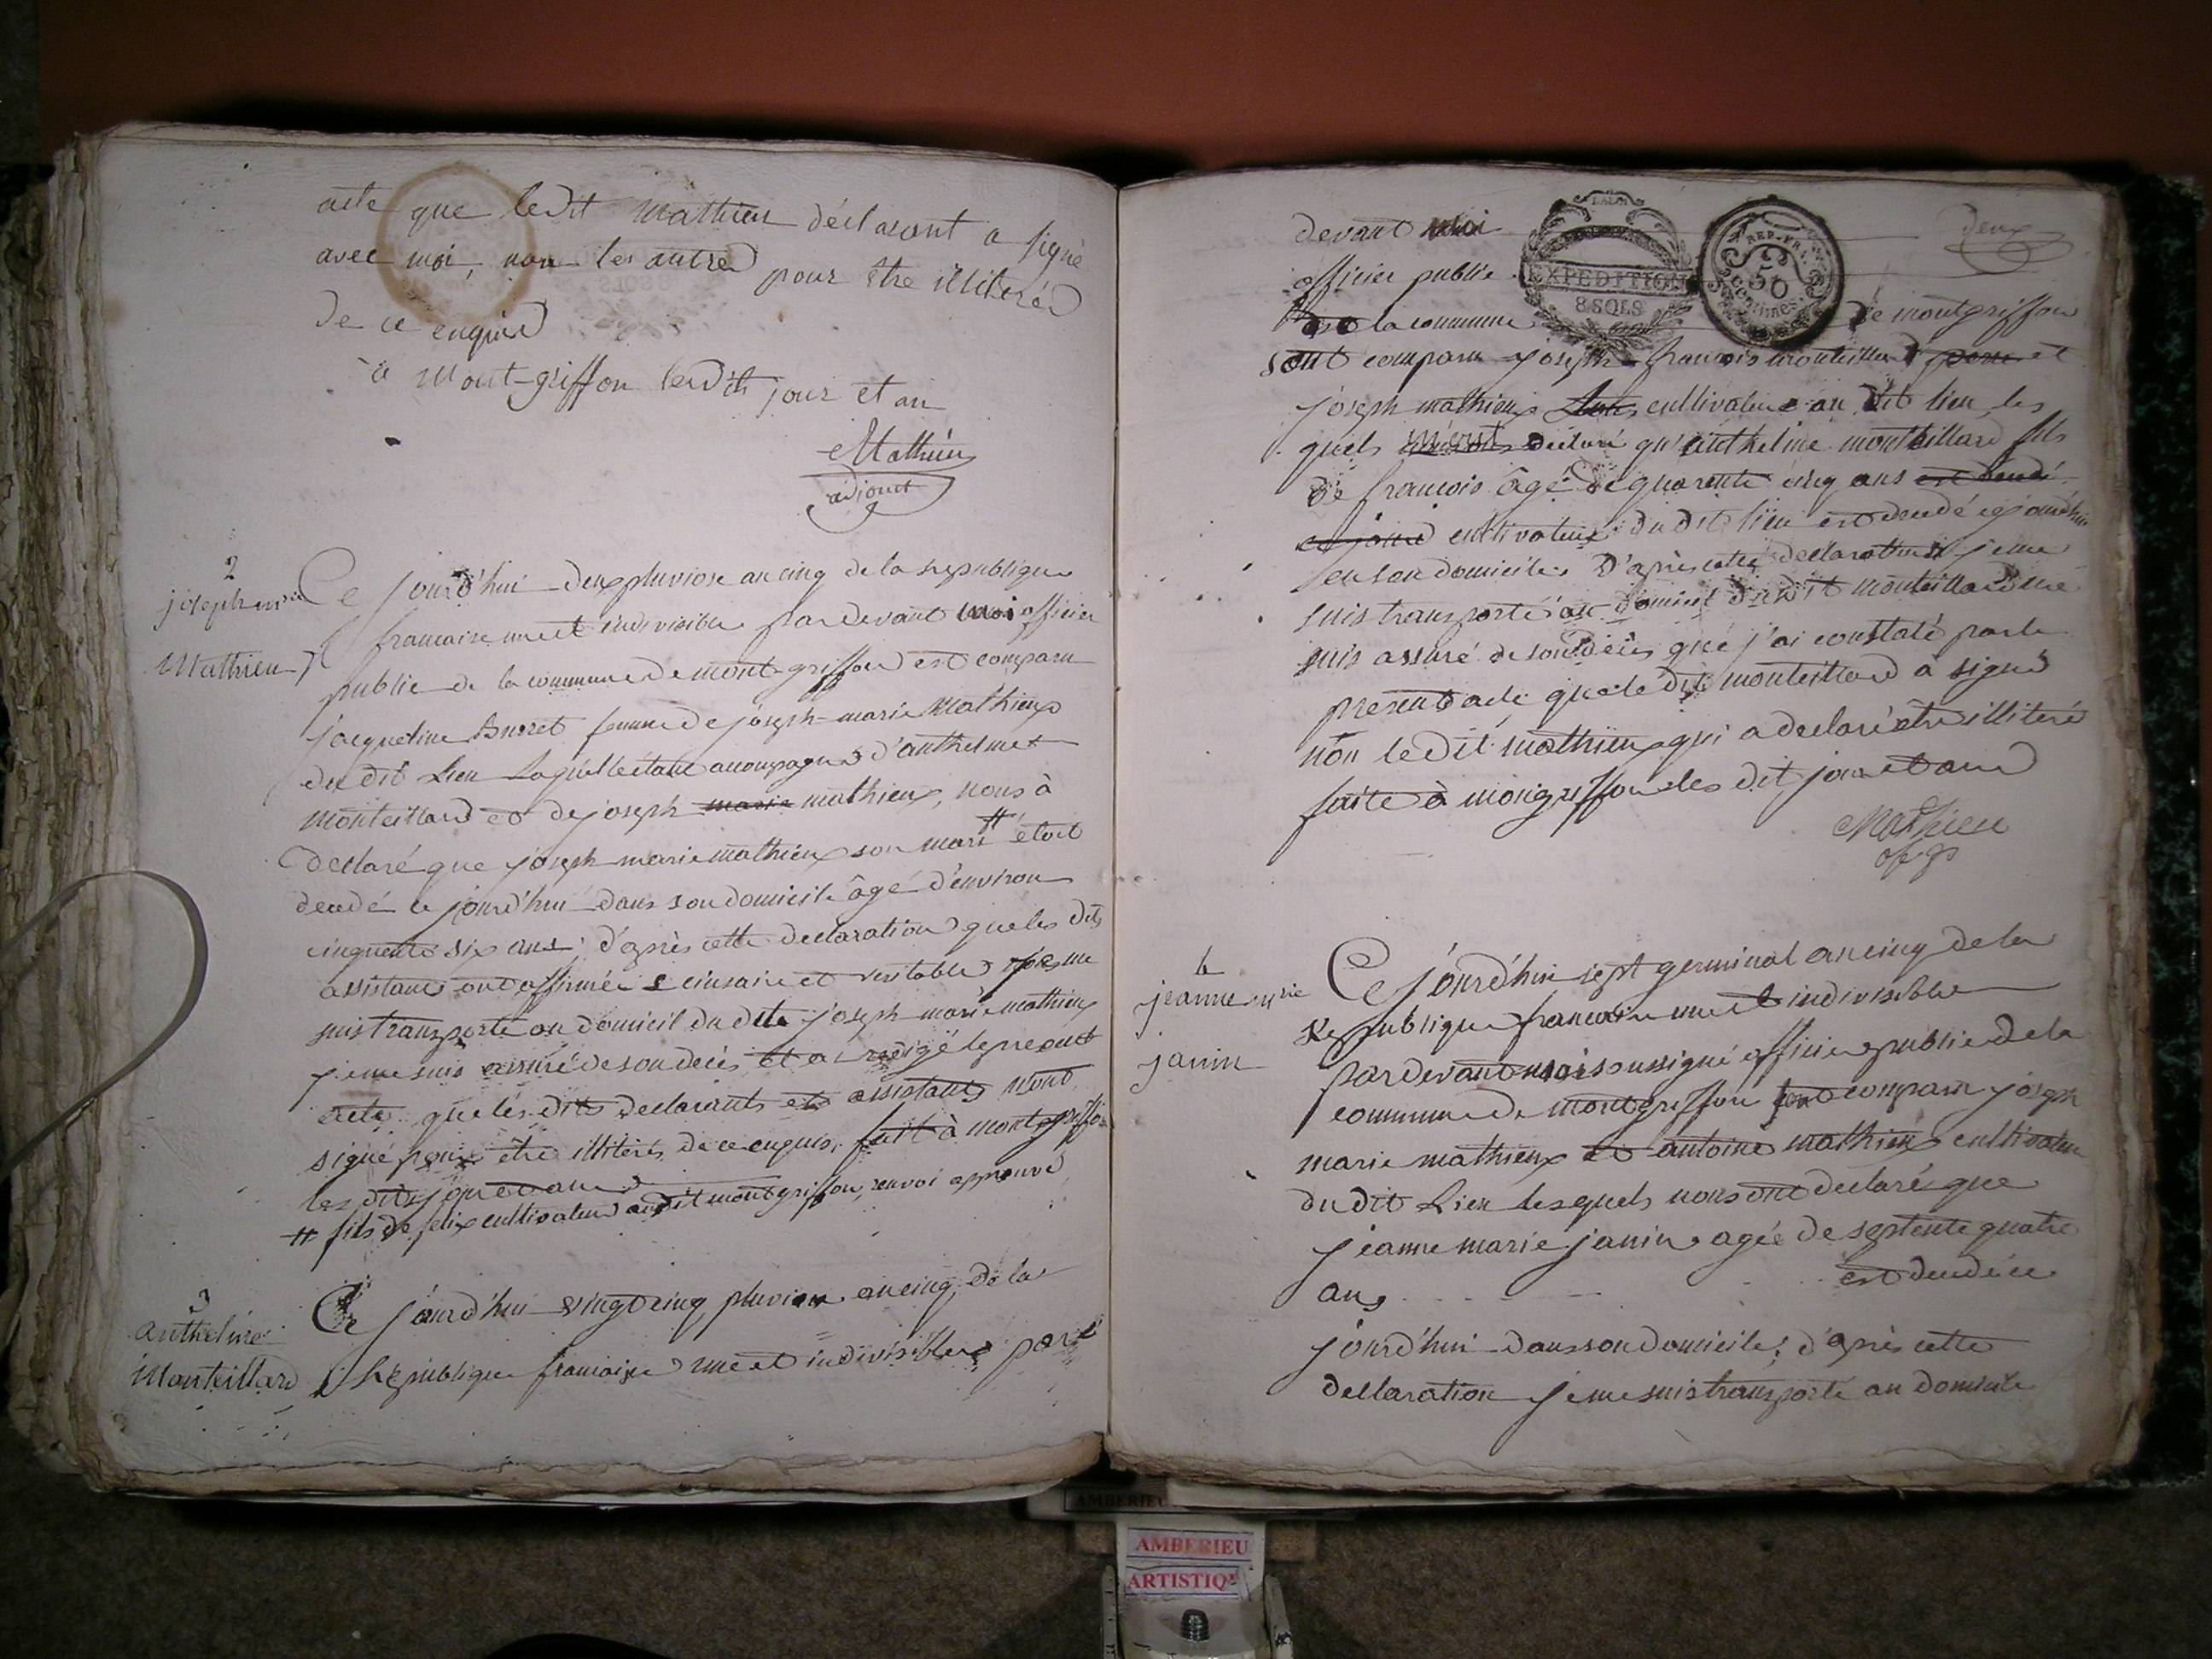 acte que ledit Mathieu déclarant a signé
avec moi, non les autres pour être illiterés
de ce enquis
à Mont-griffon lesdits jour et an
Mathieu
adjoint
2
joseph mie
Mathieu
Ce jourd'hui deux pluviose an cinq de la republique
francaise une et indivisible par devant moi officier
public de la commune de mont-griffon est comparu
jacqueline femme de joseph-marie Mathieux
du dit Lieu Laquelle étant accompagné d'anthelme
monteillard et de joseph marie mathieux, nous à
declaré que joseph marie mathieux son mari # étoit
decedé ce jourd'hui dans son domicile âgé d'environ
cinquante six ans; d'après cette declaration que les dits
assistants ont affirmée sincaire et veritable je me
suis transporté au domicil du dit joseph marie mathieux
je me suis assuré de son decès et ai redigé le present
acte que les dits declarants et assistants n'ont
signé pour être illiterés de ce enquis. fait à montgriffon
les dits jour et an
# fils de felix cultivateur au dit montgriffon, renvoi approuvé
3
anthelme
Monteillard
Ce jourd'hui vingt cinq pluviose an cinq de la
République francaise une et indivisible par
deux
devant moi
officier public
de la commune de montgriffon
sont comparu joseph francois monteillard et
joseph mathieux cultivateur au dit lieu les
quels m'ont declaré qu'anthelme monteillard fils
de francois âgé de quarente cinq ans est decedé
ce jourd cultivateur du dit lieu est decedé ce jourd'hui
en son domicile. D'après cette declaration je me
suis transporté au domicil du dit monteillard me
suis assuré de son decès que j'ai constaté par le
present acte que le dit monteillard à signé
non le dit mathieux qui a declaré être illiteré
faite à mongriffon les dit jour et an
Mathieu
EXPEDITION
8 SOLS
REP. FRA.
50
Centimes
jeanne mrie
janin
Ce jourd'hui sept germinal an cinq de la
Republique francaise une et indivisible
par devant moi soussigné officier public de la
commune de montgriffon sont comparu joseph
marie mathieux et antoine mathieux cultivateur
du dit Lieu lesquels nous ont declaré que
jeanne marie janin agée de septente quatre
ans est decedée ce
jourd'hui dans son domicile; d'après cette
declaration je me suis transporté au domicile
AMBERIEU
AMBERIEU
ARTISTIQ